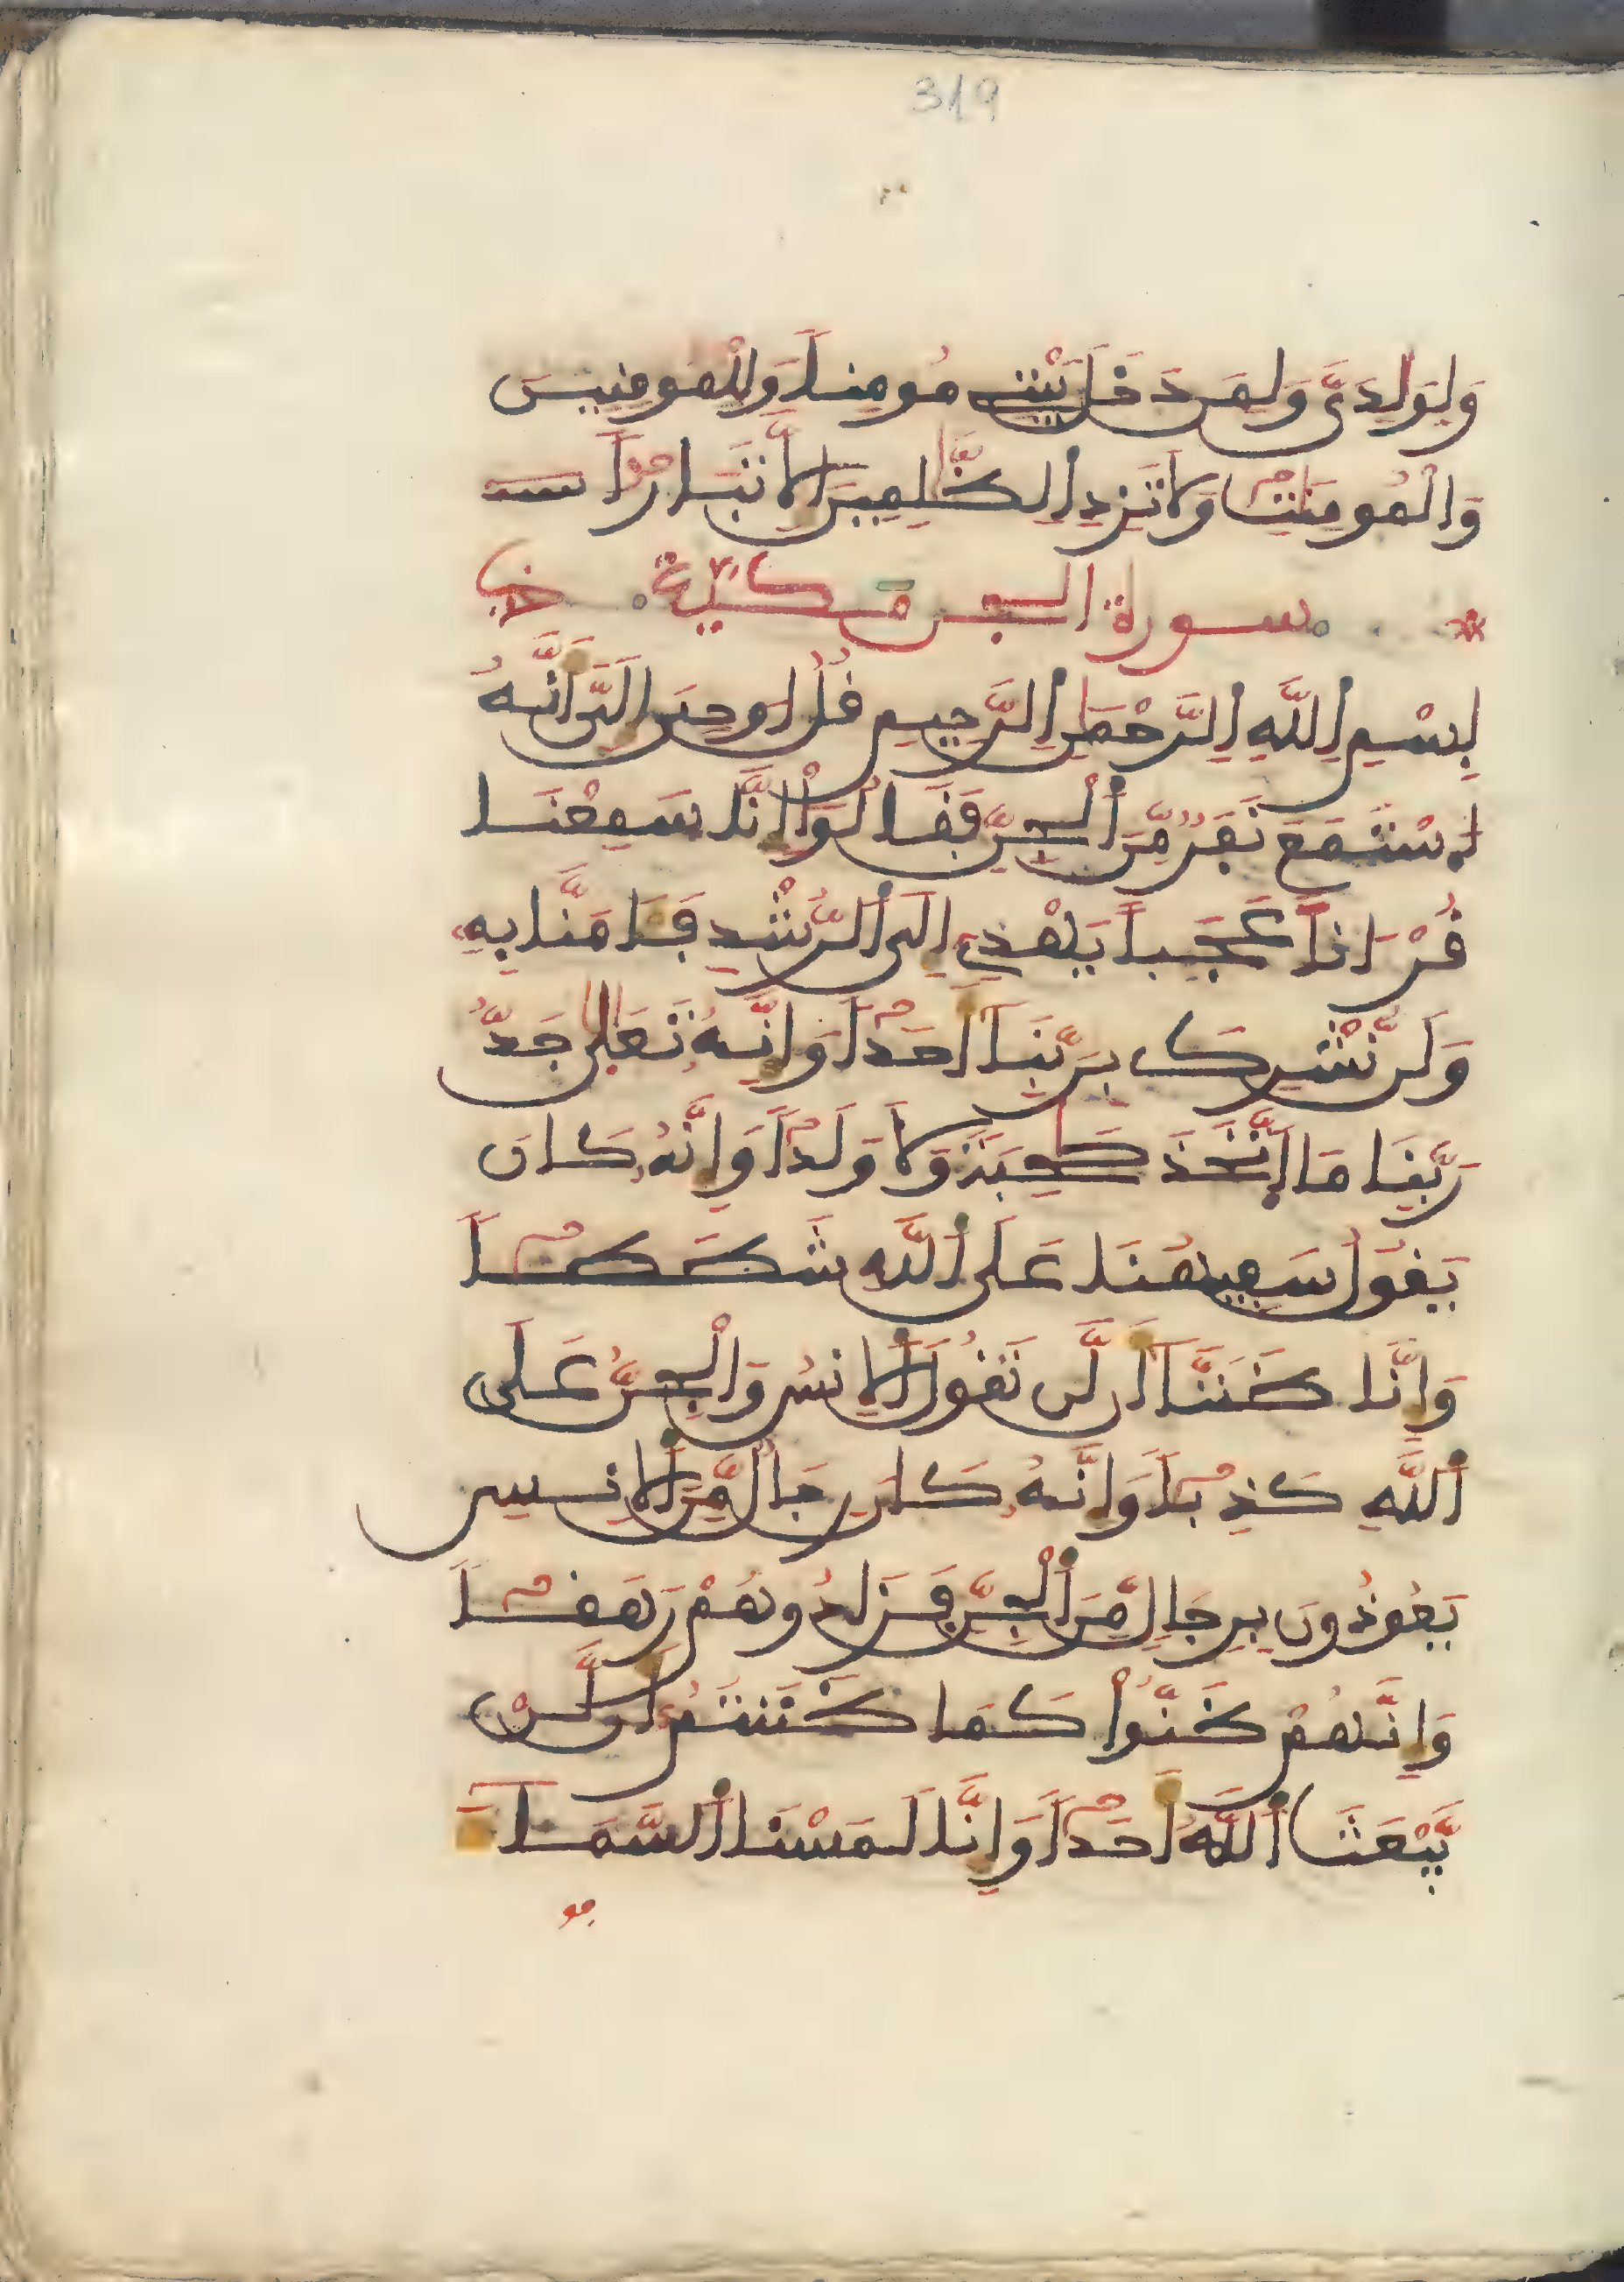 319
وَلِوَٰلِدَىَّ وَلِمَن دَخَلَ بَيْتِے مُومِناً وَلِلْمُومِنِينَ
وَالْمُومِنَٰتِ وَلَا تَزِدِ اِ۬لظَّٰلِمِينَ إِلَّا تَبَاراً
سورة الجن مكية
بِسْمِ اِ۬للَّهِ اِ۬لرَّحْمَٰنِ اِ۬لرَّحِيمِ قُلُ ا۟وحِيَ إِلَيَّ أَنَّهُ
اُ۪سْتَمَعَ نَفَرٌ مِّنَ اَ۬لْجِنِّ فَقَالُوٓاْ إِنَّا سَمِعْنَا
قُرْءَاناً عَجَباً يَهْدِےٓ إِلَى اَ۬لرُّشْدِ فَـَٔامَنَّا بِهِ
وَلَن نُّشْرِكَ بِرَبِّنَآ أَحَداً وَإِنَّهُ تَعَٰلَىٰ جَدُّ
رَبِّنَا مَا اَ۪تَّخَذَ صَٰحِبَةً وَلَا وَلَداً وَإِنَّهُ كَانَ
يَقُولُ سَفِيهُنَا عَلَى اَ۬للَّهِ شَطَطاً
وَإِنَّا ظَنَنَّآ أَن لَّن تَقُولَ اَ۬لِانسُ وَالْجِنُّ عَلَى
اَ۬للَّهِ كَذِباً وَإِنَّهُ كَانَ رِجَالٌ مِّنَ اَ۬لِانسِ
يَعُوذُونَ بِرِجَالٍ مِّنَ اَ۬لْجِنِّ فَزَادُوهُمْ رَهَقاً
وَإِنَّهُمْ ظَنُّواْ كَمَا ظَنَنتُمُۥٓ أَن لَّنْ
يَّبْعَثَ اَ۬للَّهُ أَحَداً وَإِنَّا لَمَسْنَا اَ۬لسَّمَآءَ